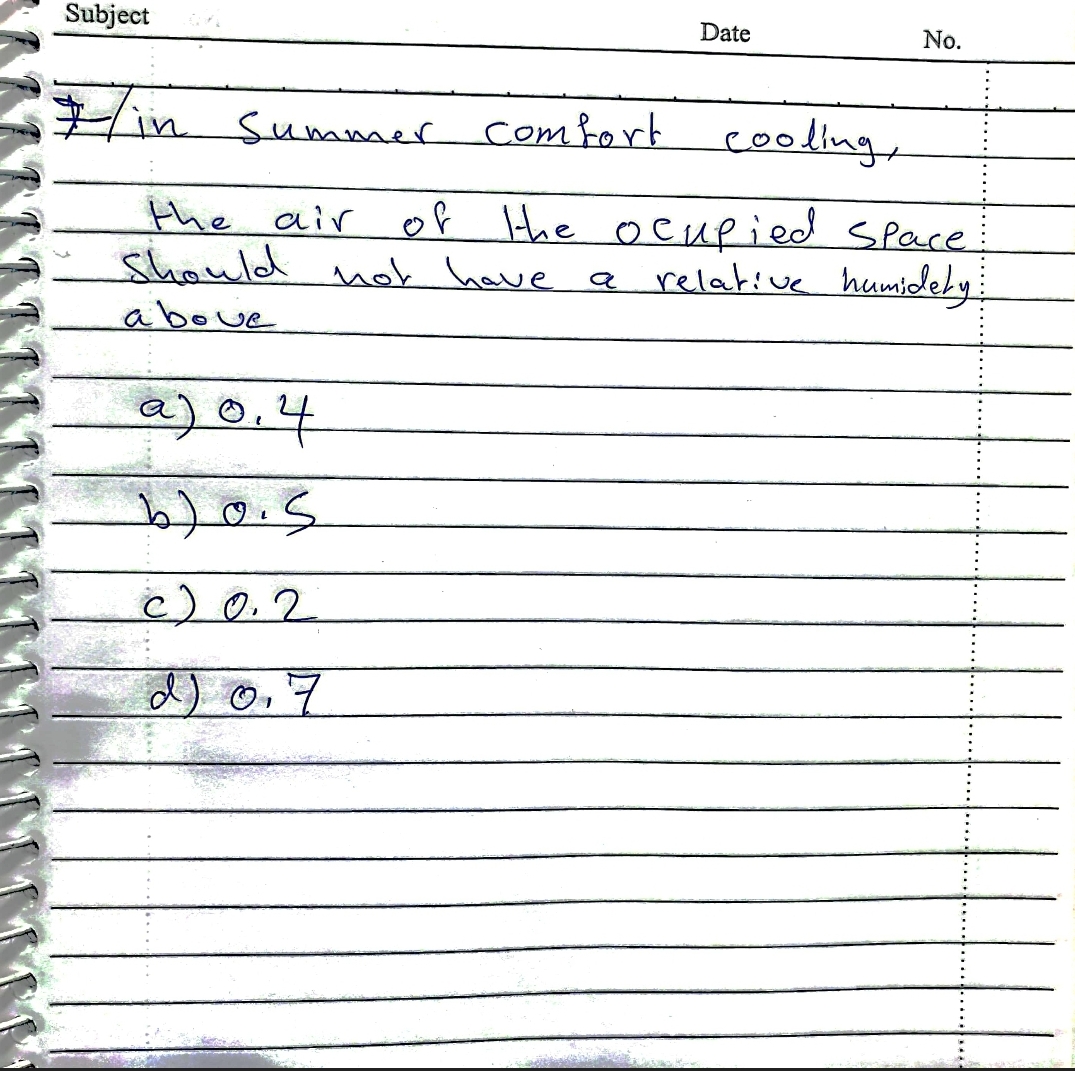 Subject
Date
No.
7/in summer comfort cooling,
the air of the ocupied space
should not have a relative humidety
above
a) 0.4
b) 0.5
c) 0.2
d) 0.7